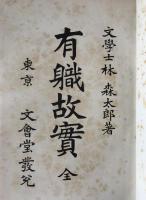 文學士林森太郎著
有職故實 全
東京 文會堂發兌